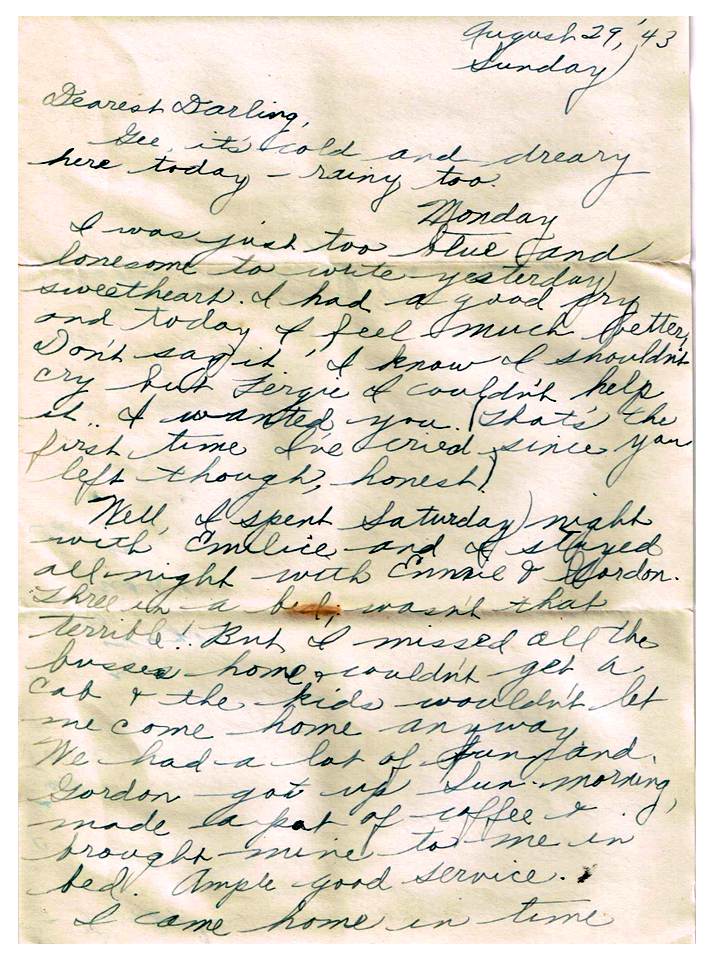 August 29, '43
Sunday
Dearest Darling,
Gee, it's cold and dreary
here today - rainy too.
Monday
I was just too blue and
lonesome to write yesterday
sweetheart. I had a good cry
and today I feel much better,
Don't say it! I know I shouldn't
cry but Fergie I couldn't help
it.. I wanted you. (That's the
first time I've cried since you
left though, honest)
Well, I spent Saturday night
with Emilice and I stayed
all-night with Ennie & Gordon.
Three in a bed, wasn't that
terrible! But I missed all the
busses home, couldn't get a
cab & the kids wouldn't let
me come home anyway
We had a lot of fun and
Gordon got up Sun. morning,
made a pot of coffee &
brought mine to me in
bed. Ample good service.
I came home in time